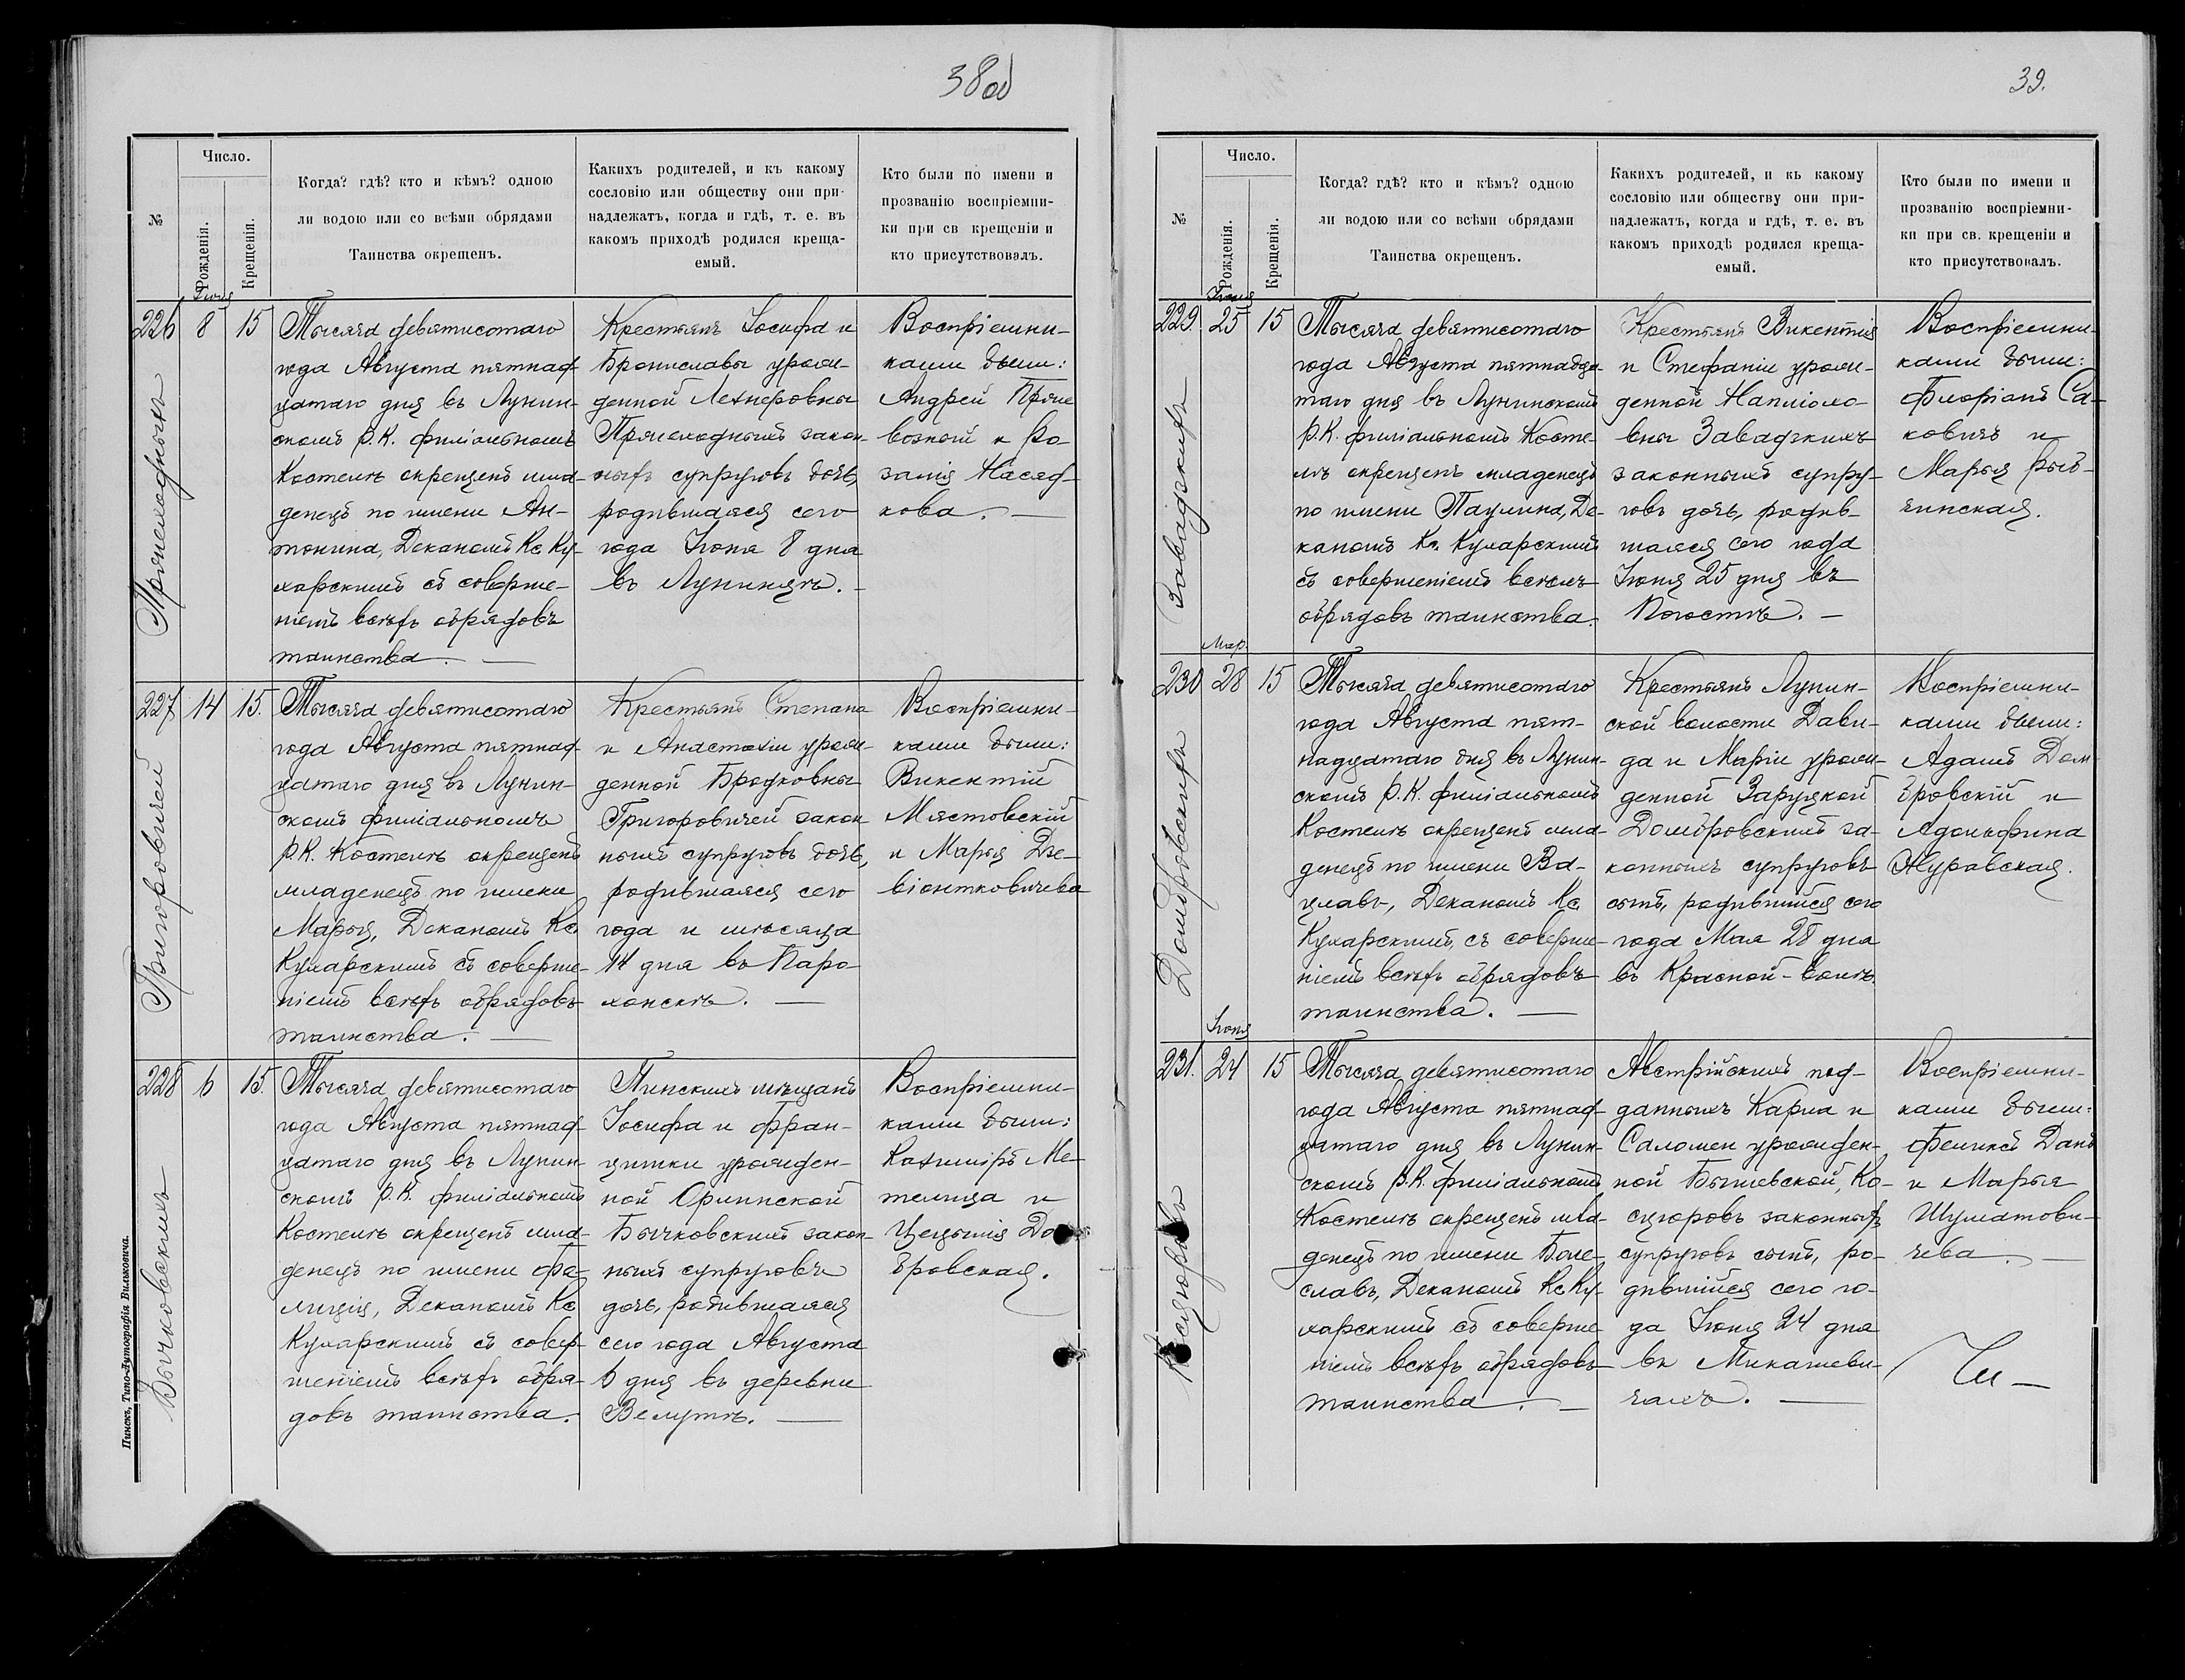 38 об
№
Число.
Рожденія.
Крещенія.
Когда? гдѣ? кто и кѣмъ? одною
ли водою или со всѣми обрядами
Таинства окрещенъ.
Какихъ родителей, и къ какому
сословію или обществу они при-
надлежатъ, когда и гдѣ, т. е. въ
какомъ приходѣ родился креща-
емый.
Кто были по имени и
прозванію воспріемни-
ки при св крещеніи и
кто присутствовалъ.
226
Іюня
8
15
Тысяча девятисотаго
года Августа пятнад-
цатаго дня въ Лунин-
скомъ Р.К. филіальномъ
Костелѣ окрещенъ мла-
денецъ по имени Ан-
тонина, Деканомъ Кс. Ку-
харскимъ съ соверше-
ніемъ всѣхъ обрядовъ
таинства. —
Крестьянъ Іосифа и
Брониславы урожд-
денной Лехнеровны
законныхъ супруговъ дочь,
родившаяся сего
года Іюня 8 дня
въ Лунинцѣ. —
Воспріемни-
ками были:
Андрей
и Ро-
залія Насяд-
кова. —
227
14
15.
Григоровичей
Тысяча девятисотаго
года Августа пятнад-
цатаго дня въ Лунин-
скомъ филіальномъ
Р.К. Костелѣ окрещенъ
младенецъ по имени
Марья, Деканомъ Кс.
Кухарскимъ съ соверше-
ніемъ всѣхъ обрядовъ
таинства. —
Крестьянъ Степана
и Анастазіи урож-
денной Бродковны
Григоровичей закон-
ныхъ супруговъ дочь,
родившаяся сего
года и мѣсяца
14 дня въ Паро-
хонскѣ. —
Воспріемни-
ками были:
Викентій
Мястовскій
и Марья Дзе-
віонтковичева
228
6
15.
Бычковскихъ
Тысяча девятисотаго
года Августа пятнад-
цатаго дня въ Лунин-
скомъ Р.К. филіальномъ
Костелѣ окрещенъ мла-
денецъ по имени Фе-
лиція, Деканомъ Кс.
Кухарскимъ съ совер-
шеніемъ всѣхъ обря-
довъ таинства. —
Пинскихъ мѣщанъ
Іосифа и Фран-
цишки урожден-
ной Орлинской
Бычковскихъ закон-
ныхъ супруговъ
дочь, родившаяся
сего года Августа
6 дня въ деревни
Велутѣ. —
Воспріемни-
ками были:
Казиміръ Ме-
телица и
Цецылія До
бровская.
Пинскъ, Типо-Литографія Вильковича.
39.
№
Число.
Рожденія.
Крещенія.
Когда? гдѣ? кто и кѣмъ? одною
ли водою или со всѣми обрядами
Таинства окрещенъ.
Какихъ родителей, и къ какому
сословію или обществу они при-
надлежатъ, когда и гдѣ, т. е. въ
какомъ приходѣ родился креща-
емый.
Кто были по имени и
прозванію воспріемни-
ки при св. крещеніи и
кто присутствовалъ.
229.
Іюня
25
15
Завадзкихъ
Тысяча девятисотаго
года Августа пятнадца-
таго дня въ Лунинскомъ
Р.К. филіальномъ Косте-
лѣ окрещенъ младенецъ
по имени Паулина, Де-
каномъ Кс. Кухарскимъ
съ совершеніемъ всѣхъ
обрядовъ таинства.
Крестьянъ Викентія
и Стефаніи урож-
денной
Завадзкихъ
законныхъ супру-
говъ дочь, родив-
шаяся сего года
Іюня 25 дня въ
Погостѣ. —
Воспріемни-
ками были:
Флоріанъ Са-
ковичъ и
Марья Рыб-
чинская.
230
Мая
28
15
Домбровскихъ
Тысяча девятисотаго
года Августа пят-
надцатаго дня въ Лунин-
скомъ Р.К. филіальномъ
Костелѣ окрещенъ мла-
денецъ по имени Ва-
цлавъ, Деканомъ Кс.
Кухарскимъ, съ соверше-
ніемъ всѣхъ обрядовъ
таинства. —
Крестьянъ Лунин-
ской волости Дави-
да и Маріи урож-
денной Заруцкой
Домбровскихъ за-
конныхъ супруговъ
сынъ, родившійся сего
года Мая 28 дня
въ Красной-Волѣ.
Воспріемни-
ками были:
Адамъ Дом-
бровскій и
Адольфина
Журавская.
231.
Іюня
24
15
Тысяча девятисотаго
года Августа пятнад-
цатаго дня въ Лунин-
скомъ Р.К. филіальномъ
Костелѣ окрещенъ мла-
денецъ по имени Боле-
славъ, Деканомъ Кс. Ку-
харскимъ съ соверше-
ніемъ всѣхъ обрядовъ
таинства. —
Австрійскихъ под-
данныхъ Карла и
Саломеи урожден-
ной Бышевской, Ко-
сцюровъ законныхъ
супруговъ сынъ, ро-
дившійся сего го-
да Іюня 24 дня
въ Микашеви-
чахъ. —
Воспріемни-
ками были:
Феликсъ Данъ
и Марья
Шуматови-
чева. —